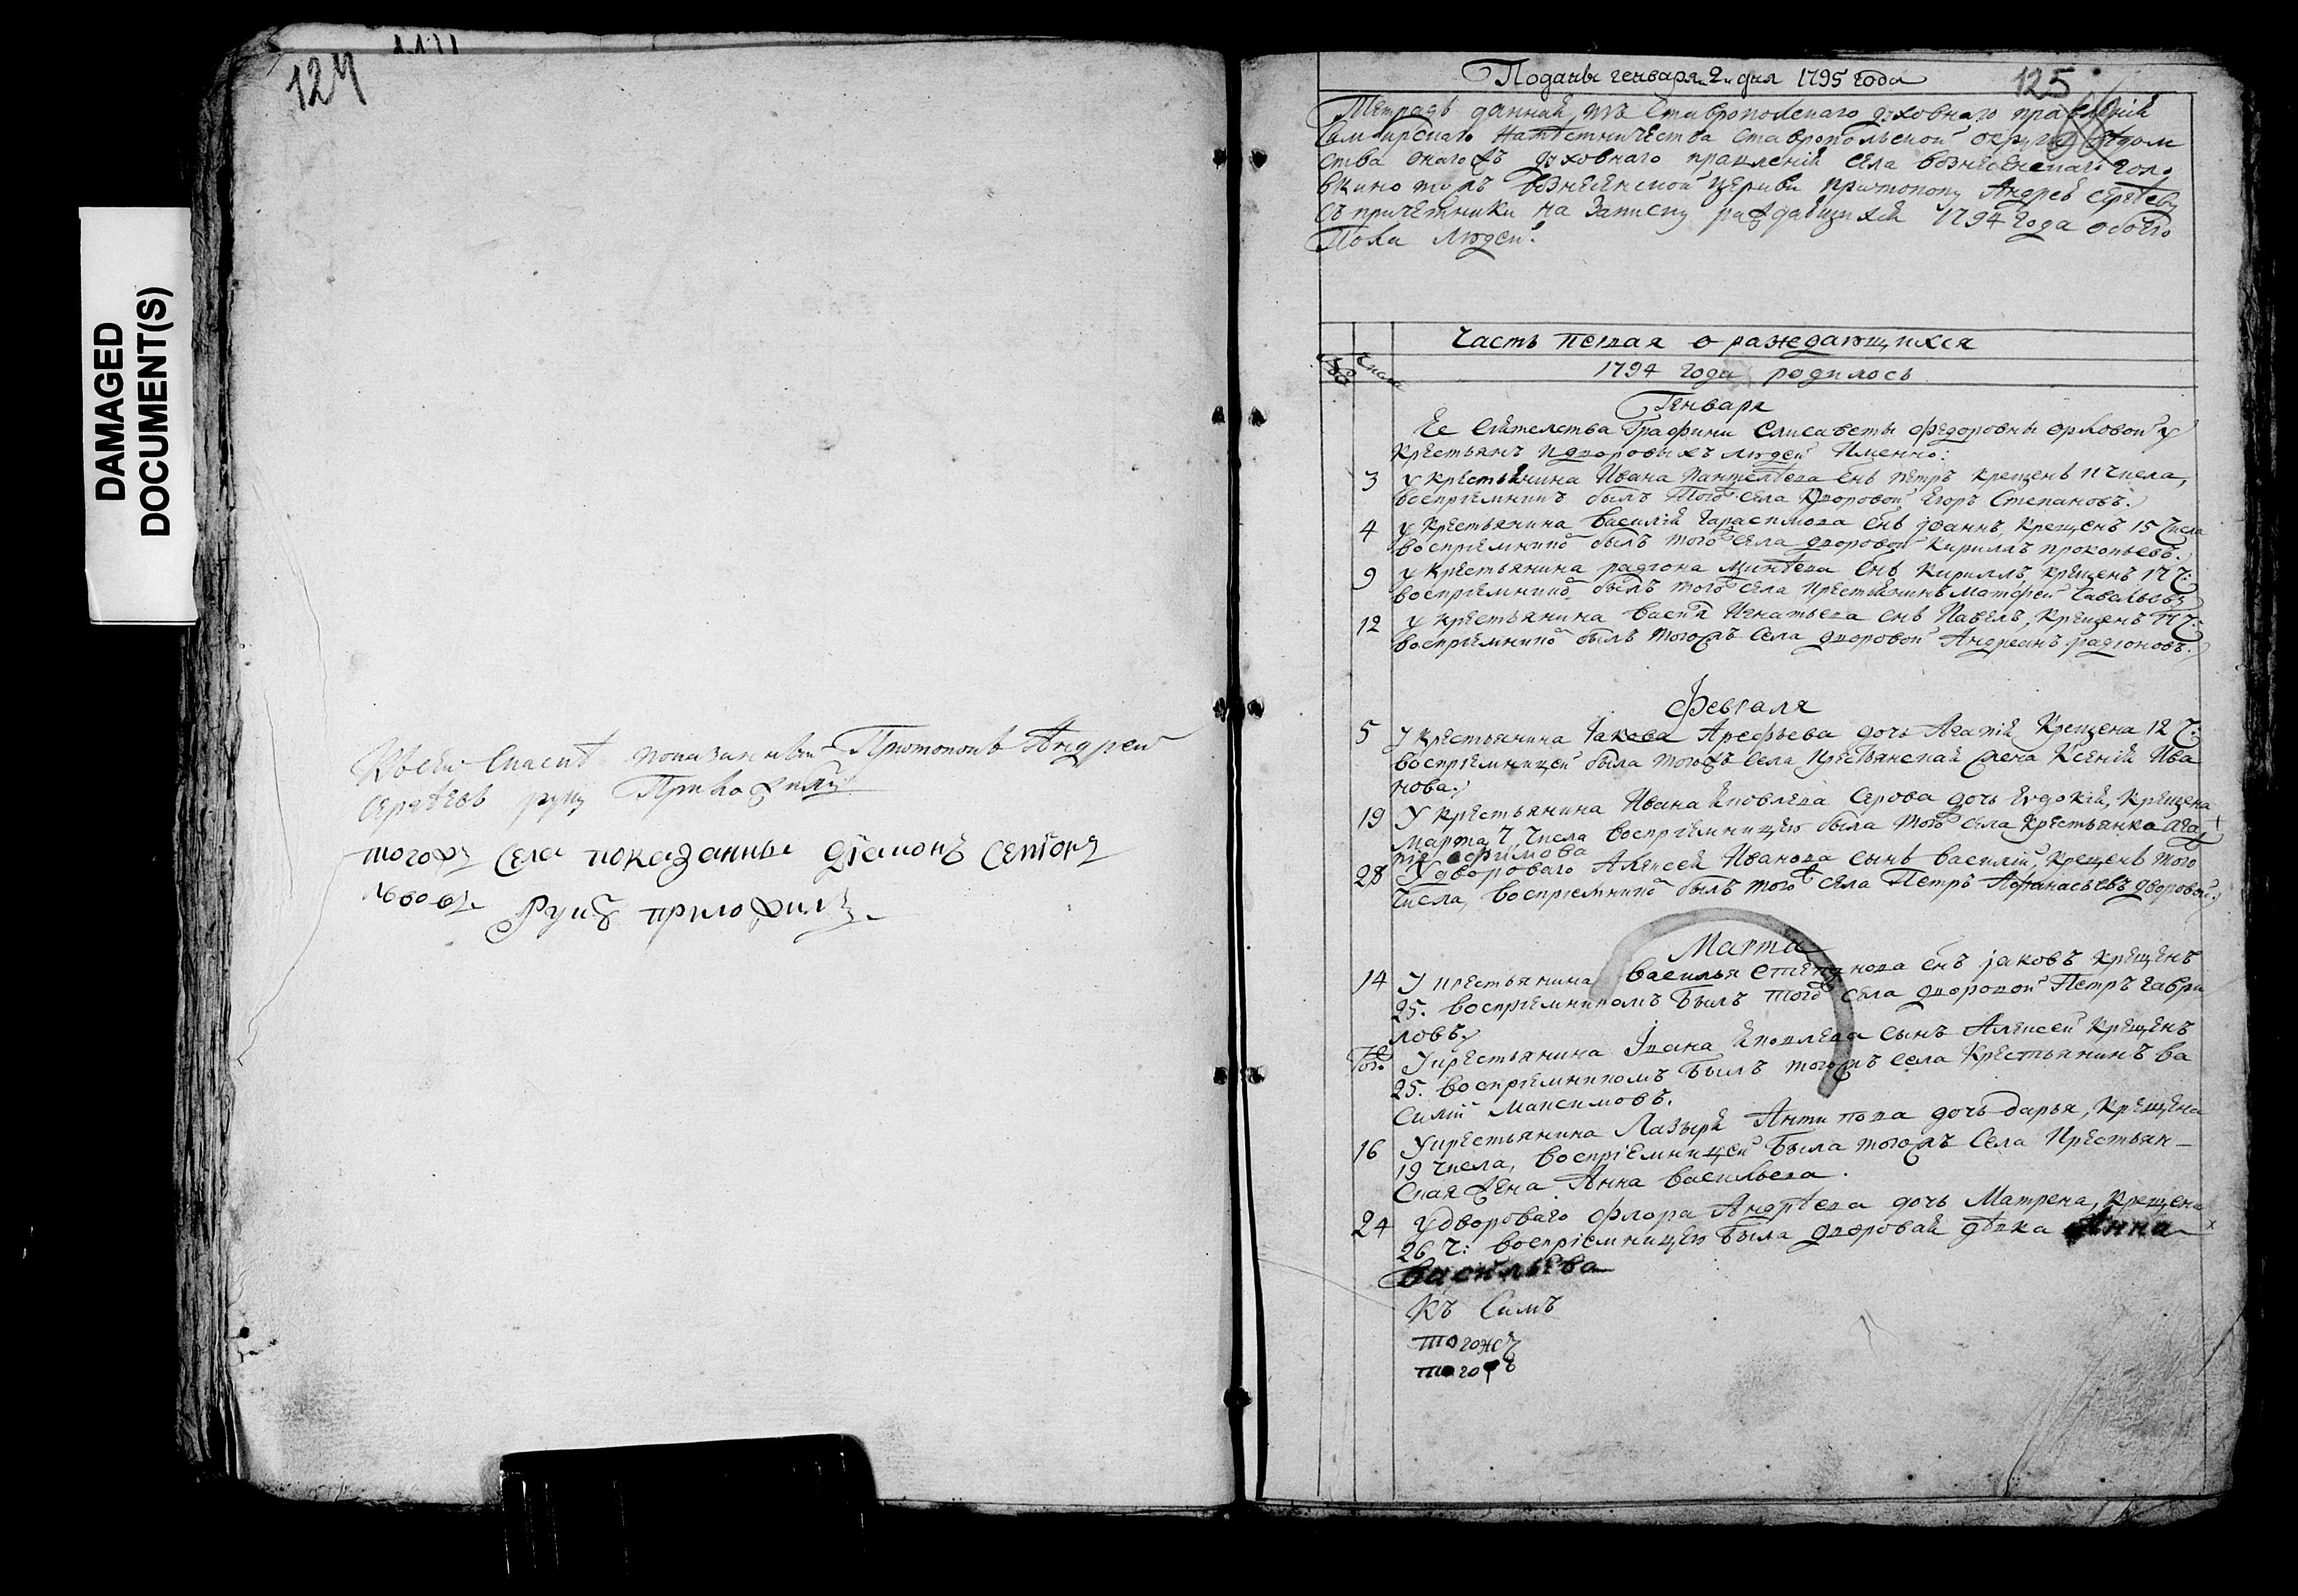 124
DAMAGED
DOCUMENT(S)
показанный Протопопъ Андрей
Сергѣевъ руку Приложилъ
тогожъ Села показанны діаконъ
Львовъ Руку приложилъ
Поданы генваря 2 дня 1795 года
125
Тетрадь данная изъ Ставропольскаго духовнаго правленія
Симбирскаго намѣстничества Ставропольской округи вѣдом
ства онагожъ духовнаго правленія села вознесенскаго голо
вкино тожъ вознесенской церкви протопопу Андрею Сергѣеву
съ причетники на записку раждающихся 1794 года обоего
Пола людей.
Часть первая о раждающихся
Числ
1794 года родилось
Генваря
Ее Сіятелства Графини Елисаветы Федоровны орловой у
крестьянъ и дворовыхъ людей Именно:
3 у крестьянина Ивана Пантелѣева снъ Петръ крещенъ 11 числа,
воспріемникъ былъ того села дворовой Егоръ Степановъ.
4 у крестьянина василія Гарасимова снъ іоаннъ, крещенъ 15 числа
воспріемникъ былъ того села дворовой Кириллъ прокопьевъ.
9 у крестьянина радіона снъ Кириллъ, крещенъ 17 ч:
воспріемникъ былъ того села крестьянинъ Матфей Савельевъ
12 у крестьянина васи́я Игнатьева снъ Павелъ, крещенъ 17 ч:
воспріемникъ былъ тогожъ села дворовой Андреянъ радіоновъ.
Февраля
5 у крестьянина Іакова Арефьева дочь Агафія крещена 12 ч:
воспріемницей была тогожъ села крестьянская жена Ксенія Ива
нова.
19 У крестьянина Ивана Яковлева Серова дочь Евдокія, крещена
марта 7 числа воспріемницею была того села крестьянка Ага
фія ефимова
28 У двороваго Алексея Иванова сынъ василій, крещенъ того
числа, воспріемникъ былъ того села Петръ Афанасьевъ дворовой.
Марта
14 У крестьянина василья степанова снъ іаковъ крещенъ
25. воспріемникомъ былъ того села дворовой Петръ гаври
ловъ.
У крестьянина Іоана Яковлева сынъ Алексей крещенъ
25. воспріемникомъ былъ тогожъ села крестьянинъ ва
силій Максимовъ.
16 У крестьянина Лазыря Антипова дочь дарья, крещена
19 числа, воспріемницей была тогожъ села крестьян-
ская жена Анна васильева.
24 У двороваго Флора Андрѣева дочь Матрена, крещена
26 ч: воспріемницею была дворовая дѣвка Анна
васильева
Къ Симъ
тогожъ
тогожъ